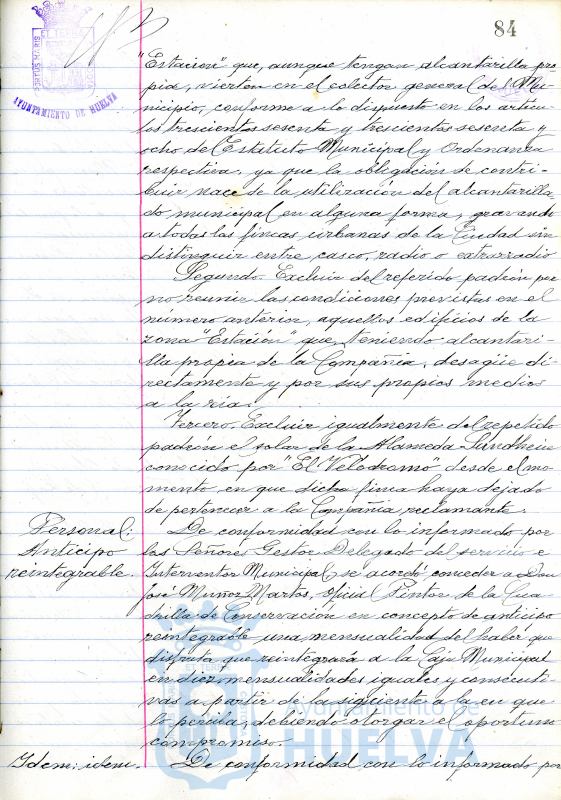 84
PORTUS MARIS
AYUNTAMIENTO DE HUELVA
"Estación" que, aunque tengan alcantarilla pro
pia, vierten en el colector general del Mu-
nicipio, conforme a lo dispuesto en los artícu-
los trescientos sesenta y trescientos sesenta y
ocho del Estatuto Municipal y Ordenanza
respectiva, ya que la obligación de contri-
buir nace de la utilización del alcantarilla-
do municipal en alguna forma, gravando
a todas las fincas urbanas de la Ciudad sin
distinguir entre casco, radio o extrarradio
Segundo. Excluir del referido padrón por
no reunir las condiciones previstas en el
número anterior, aquellos edificios de la
zona "Estación" que teniendo alcantari-
lla propia de la Compañía, desagüe di-
rectamente y por sus propios medios
a la ría.
Tercero. Excluir igualmente del repetido
padrón el solar de la Alameda Sundheim
conocido por "El Velódromo desde el mo-
mento en que dicha finca haya dejado
de pertenecer a la Compañía reclamante.
Personal:
Anticipo
reintegrable.
De conformidad con lo informado por
los Señores Gestor Delegado del servicio e
Interventor Municipal, se acordó conceder a Don
José Muñoz Martos, Oficial Pintor de la Cua-
drilla de Conservación en concepto de anticipo
reintegrable una mensualidad del haber que
disfruta que reintegrará a la Caja Municipal
en diez mensualidades iguales y consecuti-
vas a partir de la siguiente a la en que
lo perciba, debiendo otorgar el oportuno
compromiso.
Idem: idem.
De conformidad con lo informado por
Ayuntamiento de
HUELVA